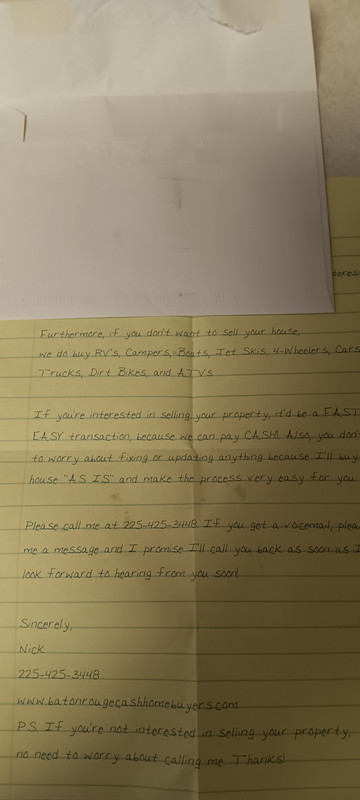 Furthermore, if you don't want to sell your house,
we do buy RV's, Campers, Boats, Jet Skis, 4-Wheelers, Cars
Trucks, Dirt Bikes, and ATVs
If you're interested in selling your property, it'd be a FAST
EASY transaction, because we can pay CASH! Also, you don't
to worry about fixing or updating anything because I'll buy
house "AS IS" and make the process very easy for you
Please call me at 225-425-3448 If you get a voicemail,
me a message and I promise I'll call you back as soon as I
look forward to hearing from you soon!
Sincerely,
Nick
225-425-3448
www.batonrougecashhomebuyers.com
P.S. If you're not interested in selling your property,
no need to worry about calling me Thanks!